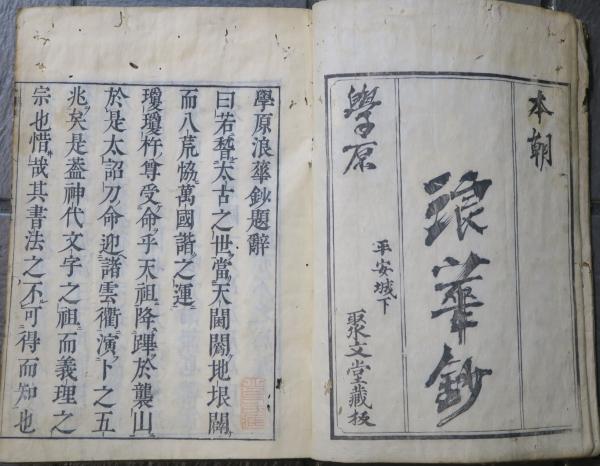 本朝
浪華鈔
學原
平安城下
聚文堂藏板
學原浪華鈔題辭
曰若稽太古之世當天開闢地垠闢
而八荒恊萬國諧之運
瓊瓊杵尊受命乎天祖降蹕於襲山
於是太詔刀命迎諧雲衢演下之五
兆矣是蓋神代文字之祖而義理之
宗也惜哉其書法之不可得而知也